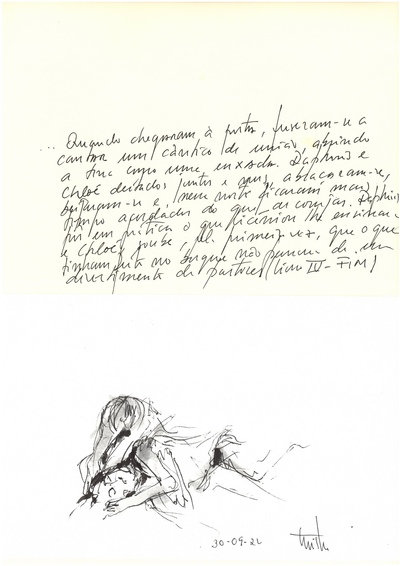 ... Quando chegaram à porta, puseram-se a
cantar um cântico de união, abrindo
a terra como uma enxada. Daphnis e
Chloé deitados juntos e nus, abraçaram-se,
beijaram-se e, nessa noite ficaram mais
tempo acordados do que as corujas. Daphnis
pôs em prática o que Licenion lhe ensinara
e Chloé soube, pela primeira vez, que o que
tinham feito no bosque não passava de um
divertimento de pastores (livro IV - FIM)
30-09-22